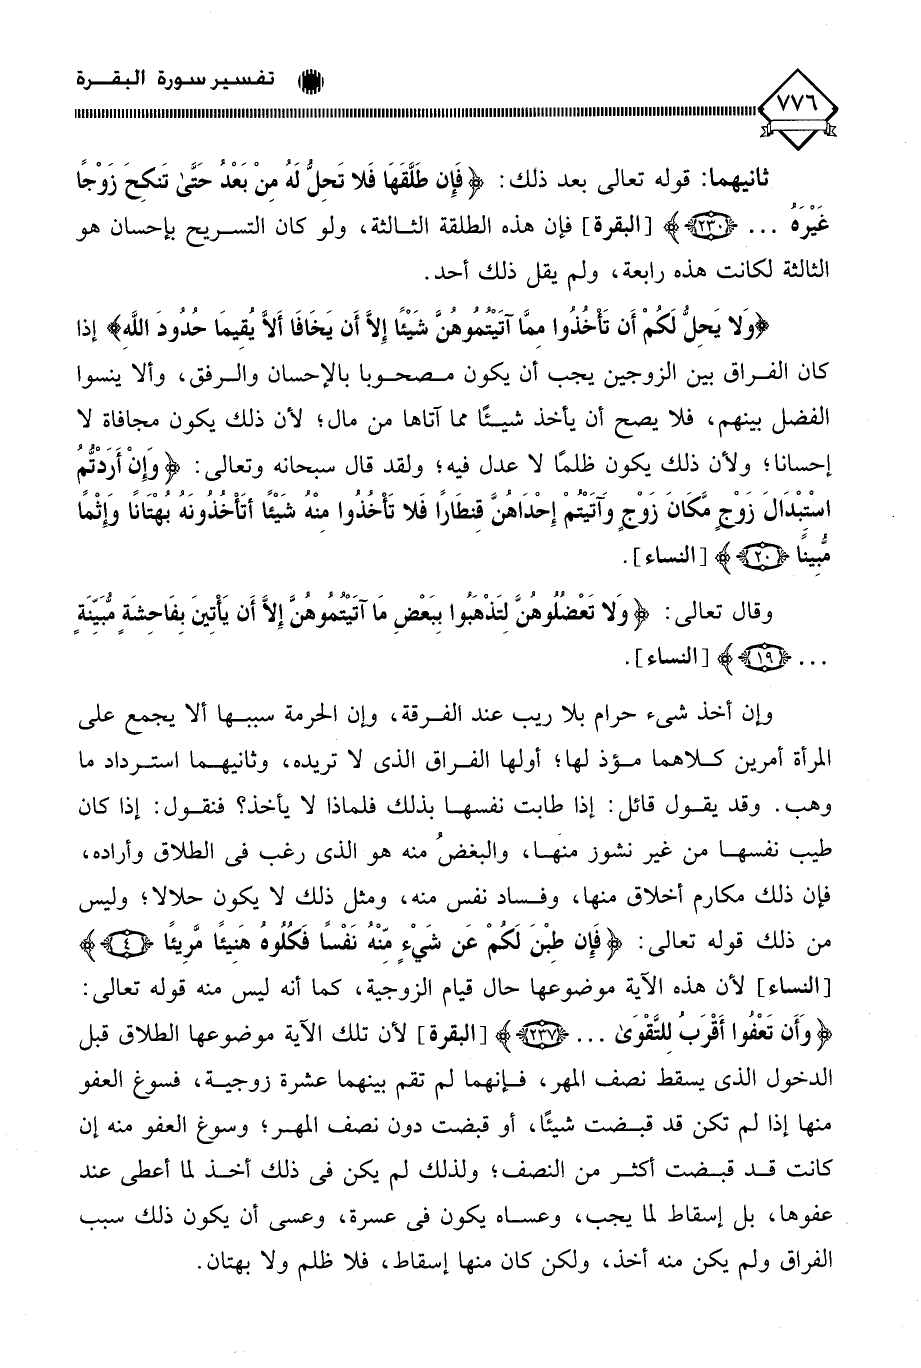 تفسير سورة البقرة
٧٧٦
ثانيهما: قوله تعالى بعد ذلك: ﴿ فَإِن طَلَّقَهَا فَلا تَحِلُّ لَهُ مِنْ بَعْدُ حَتَّىٰ تَنكِحَ زَوْجًا
غَيْرَهُ ... ﴿٢٣٠﴾ ﴾ [البقرة] فإن هذه الطلقة الثالثة، ولو كان التسريح بإحسان هو
الثالثة لكانت هذه رابعة، ولم يقل ذلك أحد.
﴿وَلا يَحِلُّ لَكُمْ أَن تَأْخُذُوا مِمَّا آتَيْتُمُوهُنَّ شَيْئًا إِلاَّ أَن يَخَافَا أَلاَّ يُقِيمَا حُدُودَ اللَّهِ﴾ إذا
كان الفراق بين الزوجين يجب أن يكون مصحوبا بالإحسان والرفق، وألا ينسوا
الفضل بينهم، فلا يصح أن يأخذ شيئًا مما آتاها من مال؛ لأن ذلك يكون مجافاة لا
إحسانا؛ ولأن ذلك يكون ظلمًا لا عدل فيه؛ ولقد قال سبحانه وتعالى: ﴿ وَإِنْ أَرَدْتُّمُ
اسْتِبْدَالَ زَوْجٍ مَّكَانَ زَوْجٍ وَآتَيْتُمْ إِحْدَاهُنَّ قِنطَارًا فَلا تَأْخُذُوا مِنْهُ شَيْئًا أَتَأْخُذُونَهُ بُهْتَانًا وَإِثْمًا
مُّبِينًا ﴿٢٠﴾ ﴾ [النساء].
وقال تعالى: ﴿ وَلا تَعْضُلُوهُنَّ لِتَذْهَبُوا بِبَعْضِ مَا آتَيْتُمُوهُنَّ إِلاَّ أَن يَأْتِينَ بِفَاحِشَةٍ مُّبَيِّنَةٍ
... ﴿١٩﴾ ﴾ [النساء].
وإن أخذ شىء حرام بلا ريب عند الفرقة، وإن الحرمة سببها ألا يجمع على
المرأة أمرين كلاهما مؤذ لها؛ أولها الفراق الذى لا تريده، وثانيهما استرداد ما
وهب. وقد يقول قائل: إذا طابت نفسها بذلك فلماذا لا يأخذ؟ فنقول: إذا كان
طيب نفسها من غير نشوز منها، والبغضُ منه هو الذى رغب فى الطلاق وأراده،
فإن ذلك مكارم أخلاق منها، وفساد نفس منه، ومثل ذلك لا يكون حلالا؛ وليس
من ذلك قوله تعالى: ﴿ فَإِن طِبْنَ لَكُمْ عَن شَيْءٍ مِّنْهُ نَفْسًا فَكُلُوهُ هَنِيئًا مَّرِيئًا ﴿٤﴾ ﴾
[النساء] لأن هذه الآية موضوعها حال قيام الزوجية، كما أنه ليس منه قوله تعالى:
﴿ وَأَن تَعْفُوا أَقْرَبُ لِلتَّقْوَىٰ ... ﴿٢٣٧﴾ ﴾ [البقرة] لأن تلك الآية موضوعها الطلاق قبل
الدخول الذى يسقط نصف المهر، فإنهما لم تقم بينهما عشرة زوجية، فسوغ العفو
منها إذا لم تكن قد قبضت شيئًا، أو قبضت دون نصف المهر؛ وسوغ العفو منه إن
كانت قد قبضت أكثر من النصف؛ ولذلك لم يكن فى ذلك أخذ لما أعطى عند
عفوها، بل إسقاط لما يجب، وعساه يكون فى عسرة، وعسى أن يكون ذلك سبب
الفراق ولم يكن منه أخذ، ولكن كان منها إسقاط، فلا ظلم ولا بهتان.